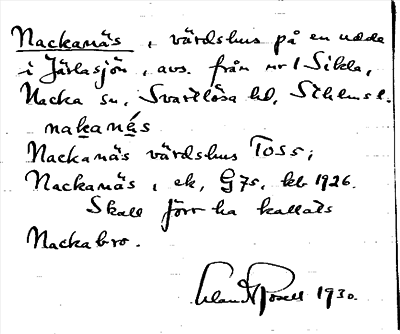 Nackanäs, värdshus på en udde
i Järlasjön, avs. från nr 1 Sikla,
Nacka sn, Svartlösa hd, Sthlms l.
nakanés
Nackanäs värdshus Toss;
Nackanäs, ek, G 75, kb 1926.
Skall förr ha kallats
Nackabro.
1930.